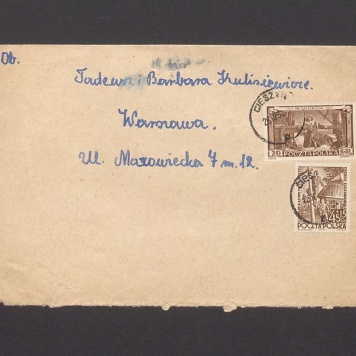 Ob.
Tadeusz i Barbara Kulisiewicze.
Warszawa.
Ul. Mazowiecka 7 m. 12.
CIESZYN
POCZTA POLSKA
CIESZ
45
POCZTA POLSKA